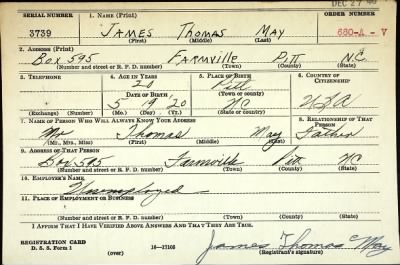 DEC 27 40
SERIAL NUMBER 1. NAME (Print) ORDER NUMBER
3739 JAMES THOMAS MAY 680-A-V
(First) (Middle) (Last)
2. ADDRESS (Print)
Box 595 FARMVILLE PITT N.C.
(Number and street or R. F. D. number) (Town) (County) (State)
3. TELEPHONE 4. AGE IN YEARS 5. PLACE OF BIRTH 6. COUNTRY OF CITIZENSHIP
20 Pitt
(Town or county)
DATE OF BIRTH
5 19 20 NC USA
(Exchange) (Number) (Mo.) (Day) (Yr.) (State or country)
7. NAME OF PERSON WHO WILL ALWAYS KNOW YOUR ADDRESS 8. RELATIONSHIP OF THAT PERSON
Mr Thomas May Father
(Mr., Mrs., Miss) (First) (Middle) (Last)
9. ADDRESS OF THAT PERSON
Box 595 Farmville Pitt NC
(Number and street or R. F. D. number) (Town) (County) (State)
10. EMPLOYER'S NAME
Unemployed
11. PLACE OF EMPLOYMENT OR BUSINESS
(Number and street or R. F. D. number) (Town) (County) (State)
I AFFIRM THAT I HAVE VERIFIED ABOVE ANSWERS AND THAT THEY ARE TRUE.
REGISTRATION CARD
D. S. S. Form 1 (over) 16-17105
James Thomas May
(Registrant's signature)